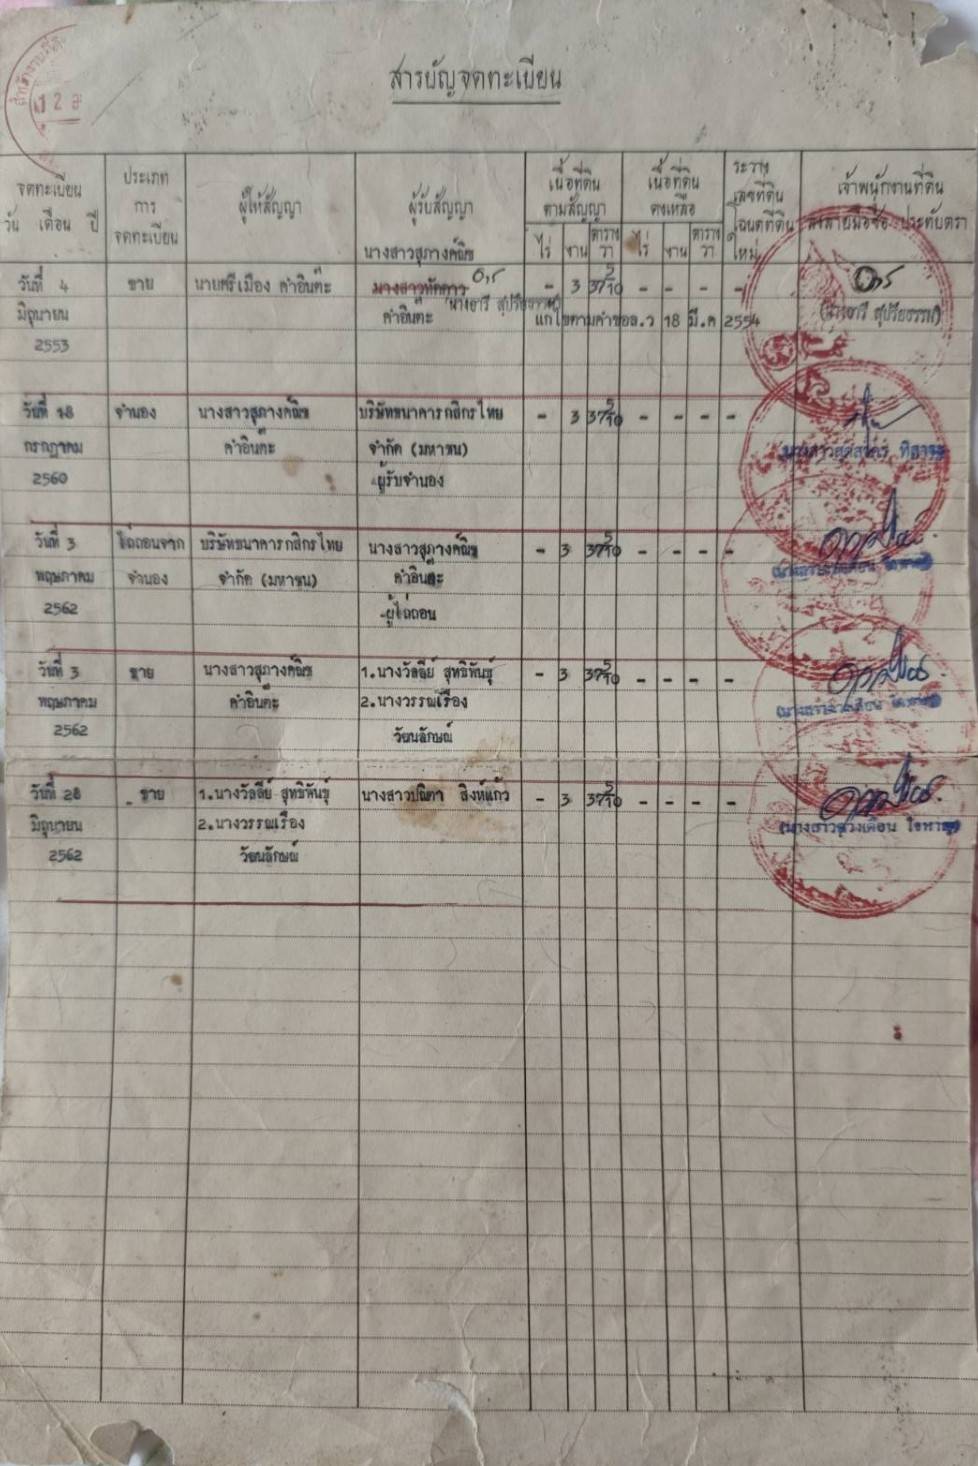 สารบัญจดทะเบียน
จดทะเบียน
วัน เดือน ปี
ประเภท
การ
จดทะเบียน
ผู้ให้สัญญา
ผู้รับสัญญา
เนื้อที่ดิน
ตามสัญญา
ไร่ งาน ตาราง
วา
เนื้อที่ดิน
คงเหลือ
ไร่ งาน ตาราง
วา
ระวาง
เลขที่ดิน
โฉนดที่ดิน
ใหม่
เจ้าพนักงานที่ดิน
ลงลายมือชื่อ ประทับตรา
นางสาวสุภางค์ณิช
วันที่ 4 ขาย นายศรีเมือง คำอินต๊ะ นางสาวทัดดาว - 3 37 5/10 - - - -
มิถุนายน คำอินต๊ะ นางอารี สุปรียธรรม แก้ไขตามคำขอล.ว 18 มี.ค 2554 (นางอารี สุปรียธรรม)
2553
วันที่ 18 จำนอง นางสาวสุภางค์ณิช บริษัทธนาคารกสิกรไทย - 3 37 5/10 - - - -
กรกฎาคม คำอินต๊ะ จำกัด (มหาชน)
2560 -ผู้รับจำนอง
วันที่ 3 ไถ่ถอนจาก บริษัทธนาคารกสิกรไทย นางสาวสุภางค์ณิช - 3 37 5/10 - - - -
พฤษภาคม จำนอง จำกัด (มหาชน) คำอินต๊ะ
2562 -ผู้ไถ่ถอน
วันที่ 3 ขาย นางสาวสุภางค์ณิช 1.นางวัลลีย์ สุทธิพันธุ์ - 3 37 5/10 - - - -
พฤษภาคม คำอินต๊ะ 2.นางวรรณเรือง
2562 วัยนลักษณ์
วันที่ 28 ขาย 1.นางวัลลีย์ สุทธิพันธุ์ นางสาวปณิตา สิงห์แก้ว - 3 37 5/10 - - - -
มิถุนายน 2.นางวรรณเรือง
2562 วัยนลักษณ์